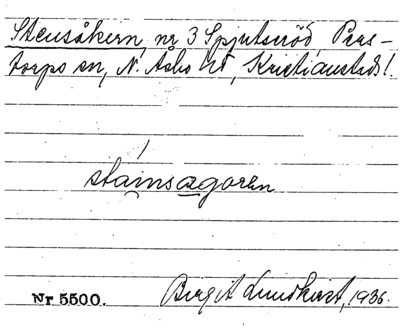 Stensåkern, nr 3 Spjutseröd Pers-
torps sn, N. Åsbo hd, Kristianstads l.
stainsagoren
Nr 5500. Birgit Lundkvist, 1936.